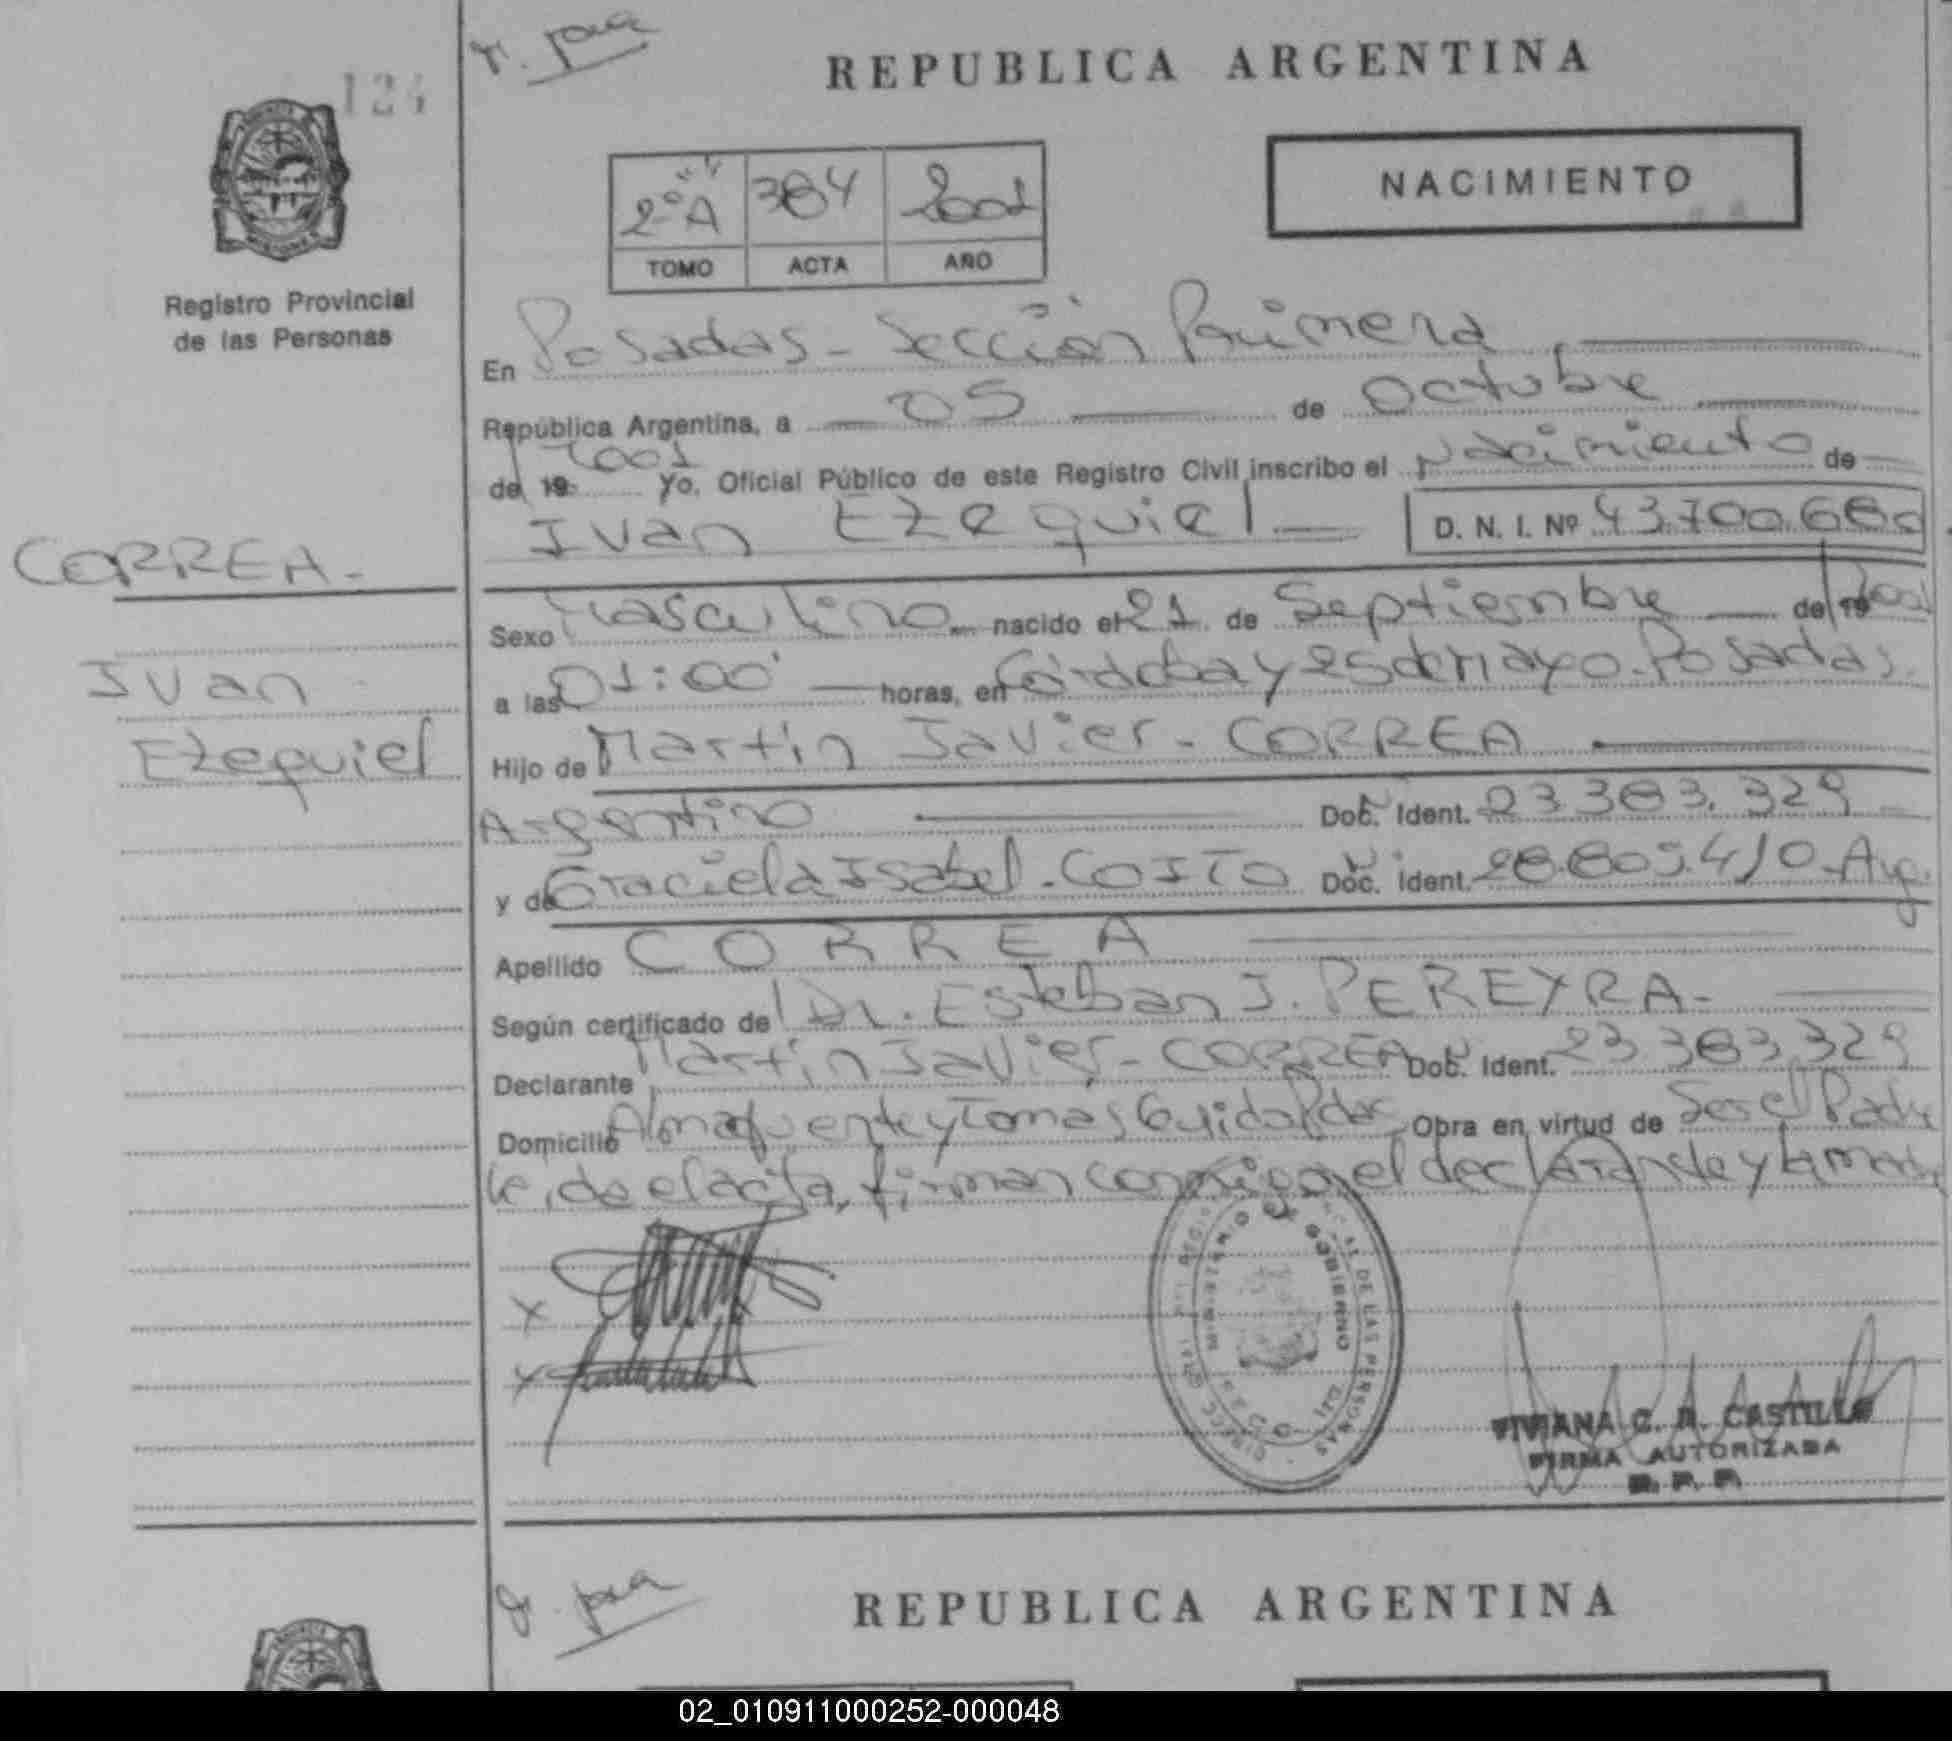 124
REPUBLICA ARGENTINA
NACIMIENTO
2º A 384 2001
TOMO ACTA AÑO
Registro Provincial
de las Personas
En Posadas - Sección Primera
República Argentina, a 05 de Octubre
de 19 2001 Yo, Oficial Público de este Registro Civil inscribo el Nacimiento de
Ivan Ezequiel D. N. I. Nº 43.700.680
CORREA.-
Ivan
Ezequiel
Sexo Masculino nacido el 21 de Septiembre de 19 2001
a las 01:00 horas, en Córdoba y 25 de Mayo-Posadas.
Hijo de Martin Javier - CORREA
Argentino Doc. Ident. 23.383.329
y de Graciela Isabel - COITO Doc. Ident. 28.809.410 - Arg.
Apellido CORREA
Según certificado de Dr. Esteban J. PEREYRA.-
Declarante Martin Javier - CORREA Doc. Ident. 23.383.329
Domicilio Almafuerte y Tomas Guido Pdas Obra en virtud de Ser el Padre
Leida el acta, firman conmigo el declarante y la madre
MINISTERIO DE GOBIERNO
DE LAS PERSONAS
VIVIANA C. R. CASTILLO
FIRMA AUTORIZADA
R. P. P.
REPUBLICA ARGENTINA
02_010911000252-000048